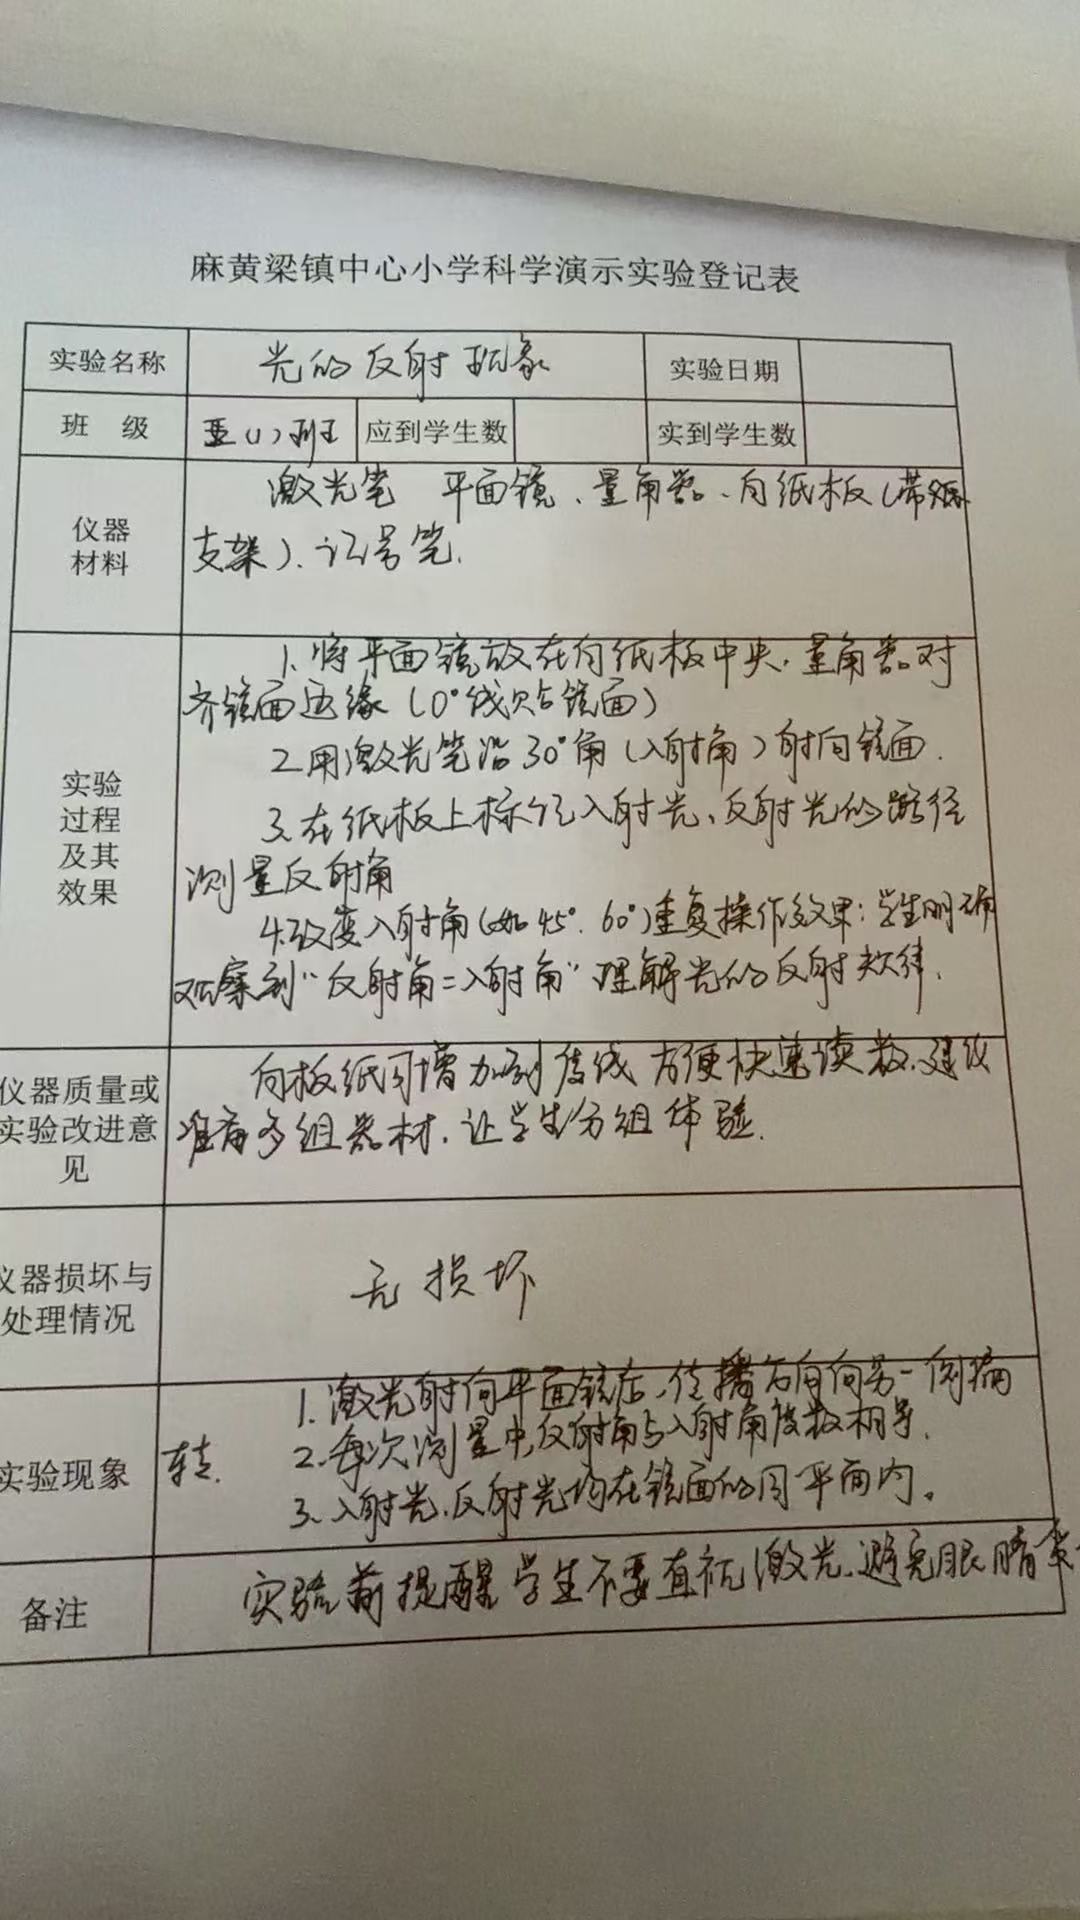 麻黄梁镇中心小学科学演示实验登记表
实验名称 光的反射现象 实验日期
班 级 五(1)班 应到学生数 实到学生数
仪器
材料
激光笔 平面镜、量角器、白纸板(带
支架)、记号笔.
实验
过程
及其
效果
1.将平面镜放在白纸板中央,量角器对
齐镜面边缘(0°线贴镜面)
2.用激光笔沿30°角(入射角)射向镜面.
3.在纸板上标记入射光、反射光的路径
测量反射角
4.改变入射角(如45°、60°)重复操作效果:学生明确
观察到“反射角=入射角”理解光的反射规律.
仪器质量或
实验改进意
见
白板纸可增加刻度线 方便快速读数.建议
准备多组器材,让学生分组体验.
仪器损坏与
处理情况
无损坏
实验现象
1.激光射向平面镜后,传播方向向另一侧偏
转.
2.每次测量中,反射角与入射角度数相等.
3.入射光、反射光均在镜面的同平面内。
备注
实验前提醒学生不要直视激光,避免眼睛